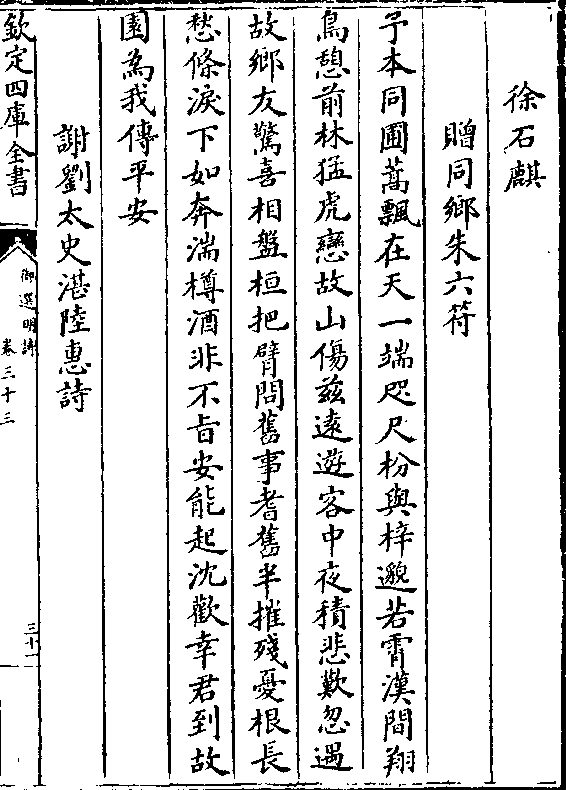 徐石麒
贈同鄉朱六符
予本同圃蒿飄在天一端咫尺枌與梓邈若霄漢間翔
鳥憩前林猛虎戀故山傷兹遠遊客中夜積悲歎忽遇
故鄉友驚喜相盤桓把臂問舊事耆舊半摧殘憂根長
愁條淚下如奔湍樽酒非不旨安能起沈歡幸君到故
園為我傳平安
謝劉太史湛陸惠詩
欽定四庫全書
御選明詩
卷三十三
三十一